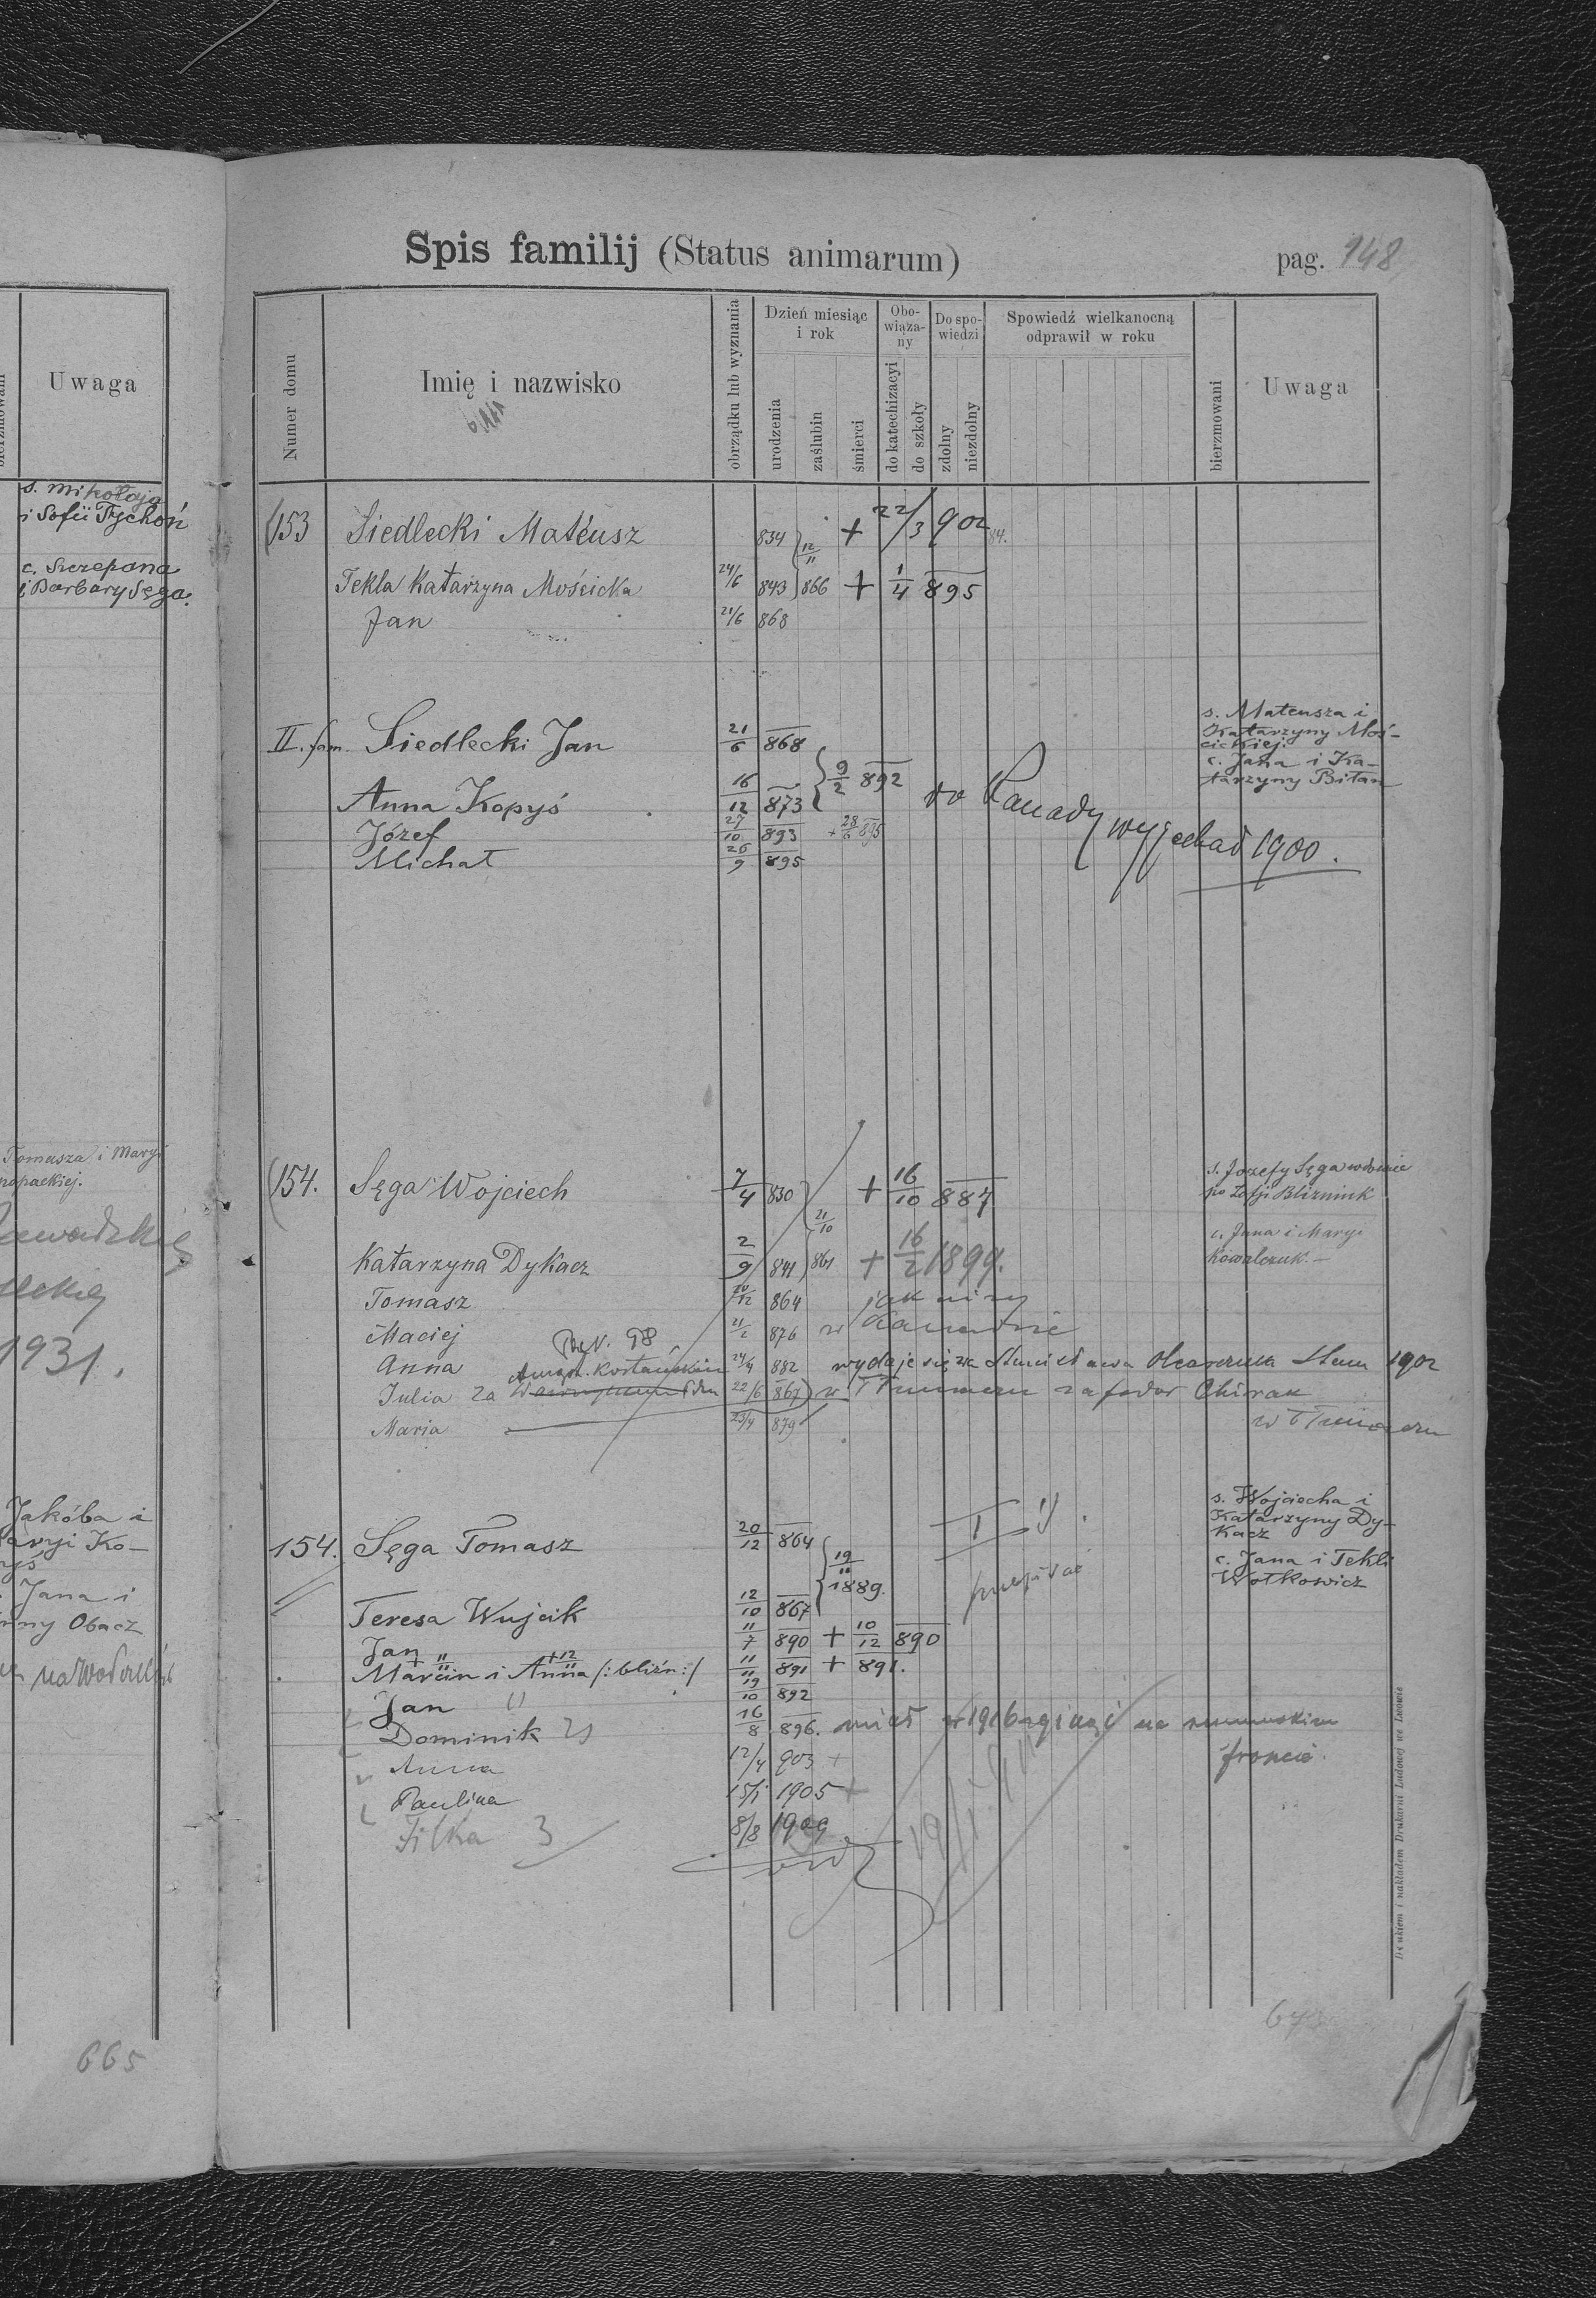 Uwaga
s. Mikołaja
i Sofii Tychoń
c. Szczepana
i Barbary Sęga.
Tomasza i Maryi
1931.
Jakóba i
Jana i
Obacz
665
Spis familij (Status animarum)
pag. 148
Numer domu
Imię i nazwisko
obrządku lub wyznania
Dzień miesiąc i rok
urodzenia
zaślubin
śmierci
Obowiązany
do katechizacyi
do szkoły
Do spowiedzi
zdolny
niezdolny
Spowiedź wielkanocną
odprawił w roku
bierzmowani
Uwaga
153 Siedlecki Mateusz 834 12/11 + 22/3 902
Tekla Katarzyna Mościcka 24/6 843 866 + 1/4 895
Jan 21/6 868
II. fam. Siedlecki Jan 21/6 868
s. Mateusza i
Katarzyny Moś-
cickiej.
c. Jana i Ka-
tarzyny Bitan
9/2 892
Anna Kopyś 16/12 873
do Kanady wyjechał 1900.
Józef 27/10 893 + 28/6 895
Michał 26/9 895
154. Sęga Wojciech 7/4 830 + 16/10 887
s. Józefy Sęga wdowie
po Zofji Blizniuk
21/10
Katarzyna Dykacz 2/9 841 861 + 16/2 1899.
c. Jana i Maryi
Kowalczuk.
Tomasz 20/12 864 jak niżej
Maciej 21/2 876 w Kanadzie
Anna 24/4 882 wydaje się za 1902
Julia za 22/6 867 w za fedor Chirak
Maria 23/4 879
154. Sęga Tomasz 20/12 864
s. Wojciecha i
Katarzyny Dy-
kacz
c. Jana i Tekli
Wołkowicz
19/11 1889.
Teresa Wujcik 12/10 867
Jan 11/7 890 + 10/12 890
Marcin i Anna /: bliźn :/ 11/11 891 + 891.
Jan 19/10 892
Dominik 16/8 896. miał w 1916 zginąć na rumuńskim
froncie.
Anna 12/4 903 +
Paulina 15/1 1905 +
Filka 3 8/8 1909
Drukiem i nakładem Drukarni Ludowej we Lwowie